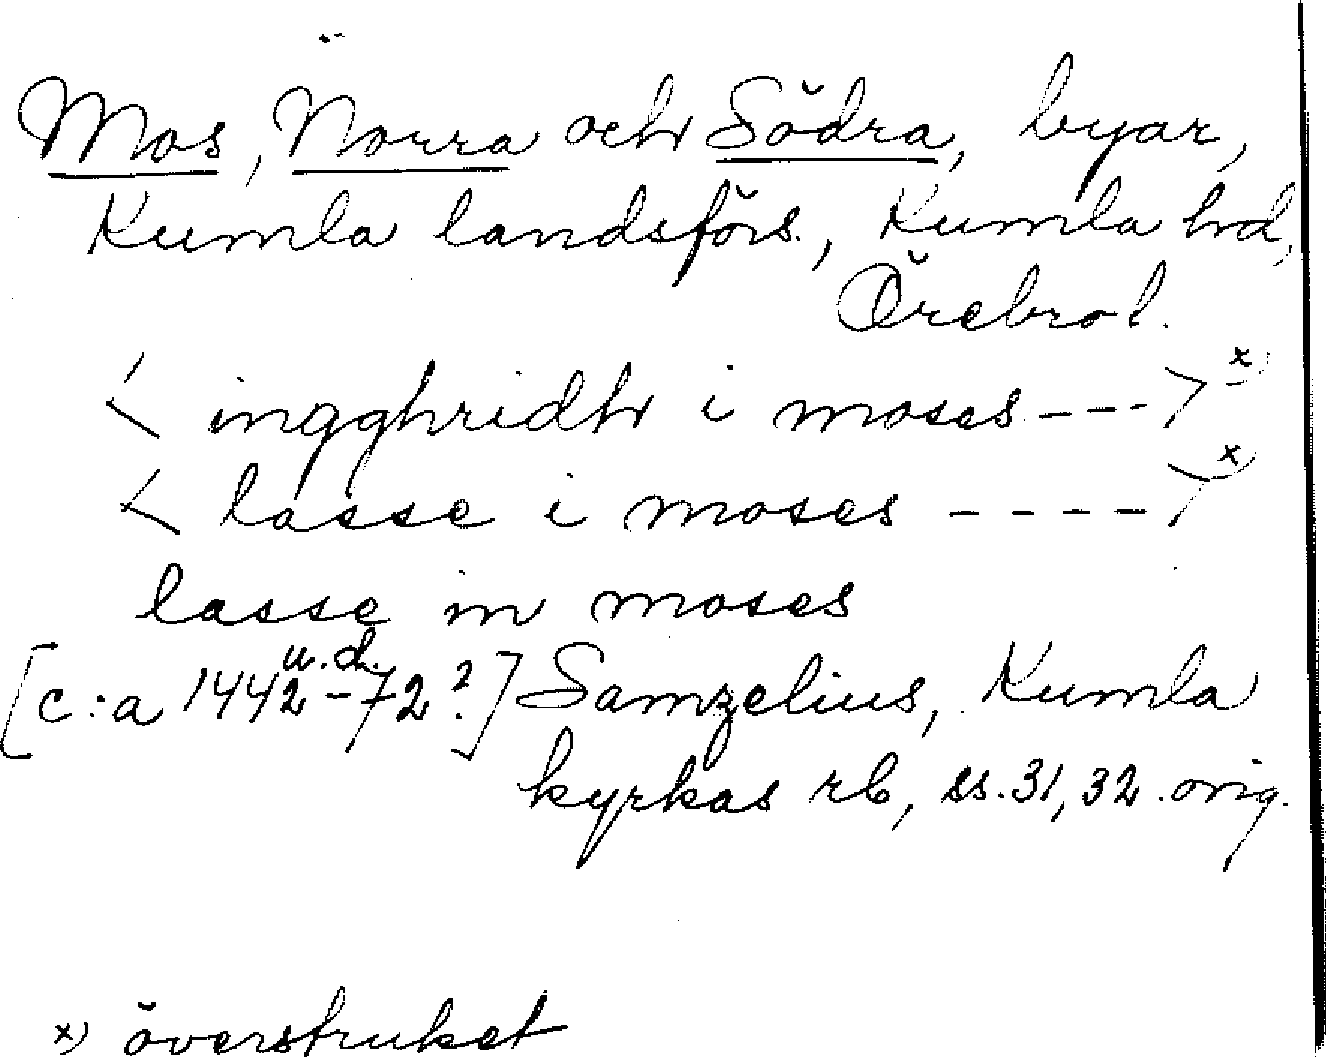 Mos, Norra och Södra, byar,
Kumla landsförs., Kumla hd,
Örebro l.
< ingghridh i moses --->x)
< lasse i moses ---->x)
lasse in moses
[c:a 1442 u.d. -72?] Samzelius, Kumla
kyrkas rb, ss. 31, 32. orig.
x) överstruket